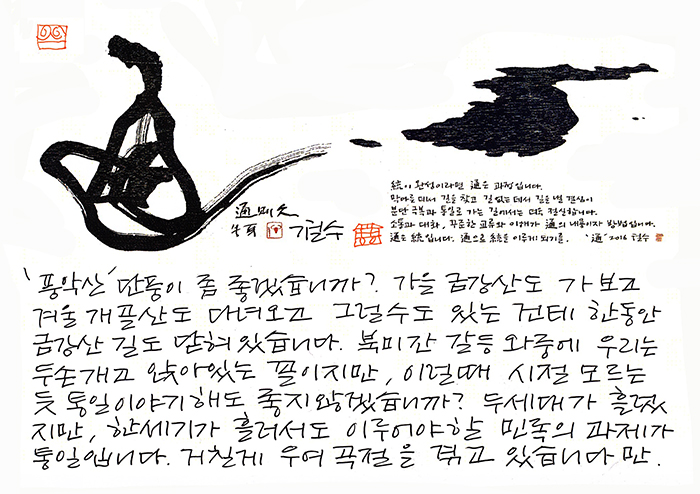 統이 완성이라면 通은 과정입니다.
막다른 데서 길을 찾고 길 없는 데서 길을 낼 결심이
분단 극복과 통일로 가는 길에서는 더욱 절실합니다.
소통과 대화, 꾸준한 교류와 이해가 通의 내용이자 방법입니다.
通은 統입니다. 通으로 統을 이루게 되기를. '通' 2016 철수
通則久
철수
'풍악산' 단풍이 좀 좋겠습니까? 가을 금강산도 가 보고
겨울 개골산도 다녀오고 그럴수도 있는 건데 한동안
금강산 길도 닫혀있습니다. 북미간 갈등 와중에 우리는
두손개고 앉아있는 꼴이지만, 이럴때 시절 모르는
듯 통일이야기해도 좋지않겠습니까? 두세대가 흘렀
지만, 한세기가 흘러서도 이루어야할 민족의 과제가
통일입니다. 거칠게 우여곡절을 겪고 있습니다만.